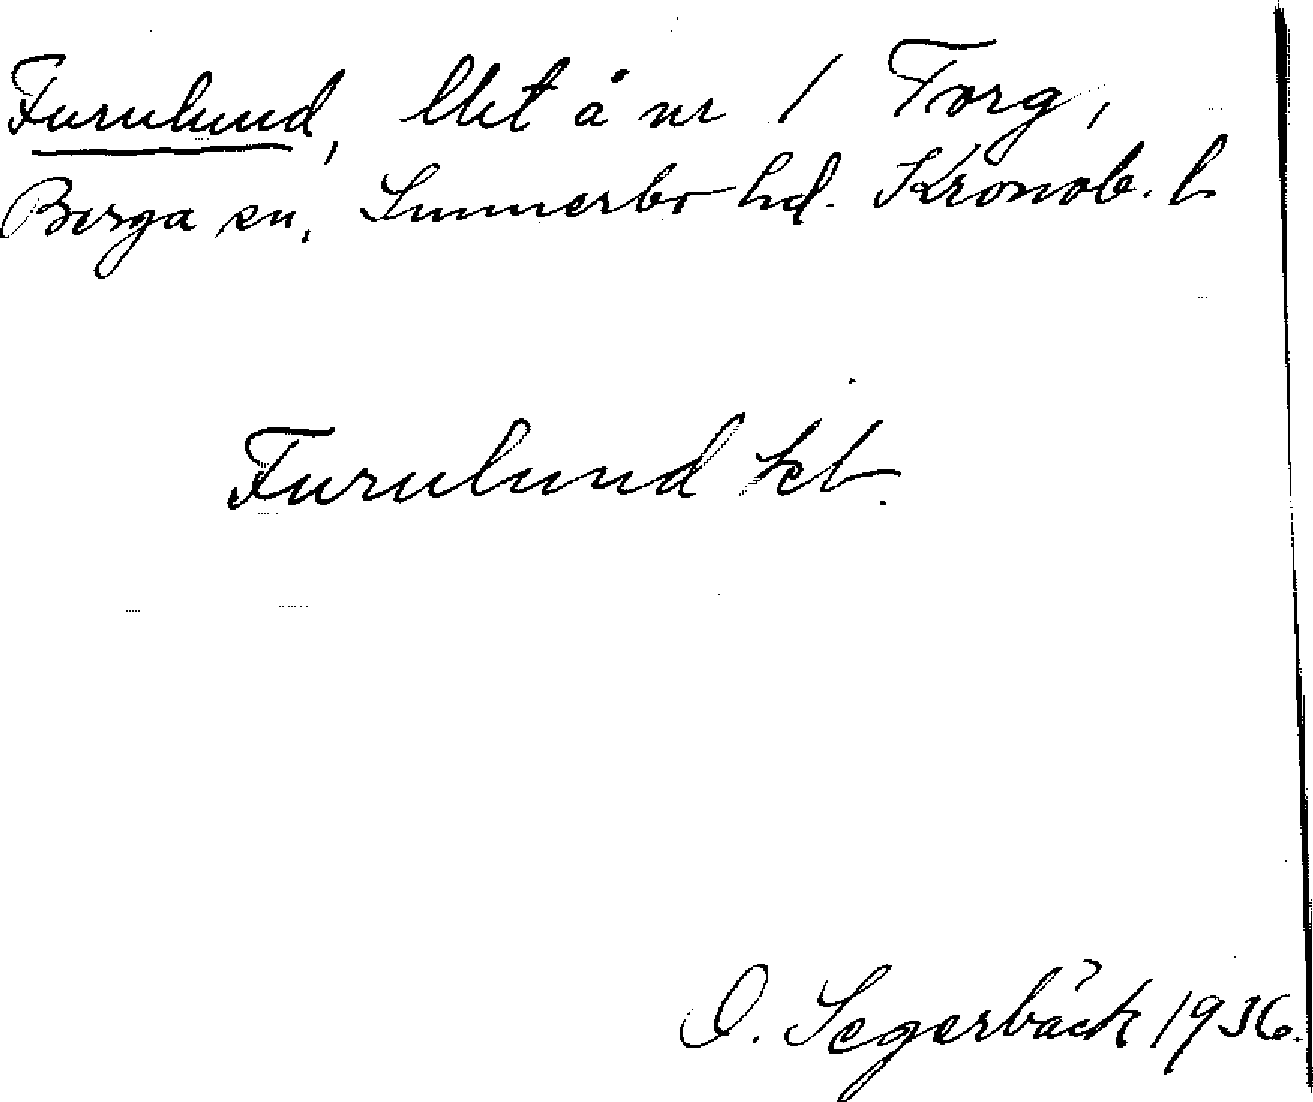 Furulund, llht å nr 1 Torg,
Berga sn. Sunnerbo hd. Kronob. l.
Furulund ht.
O. Segerbäck 1936.